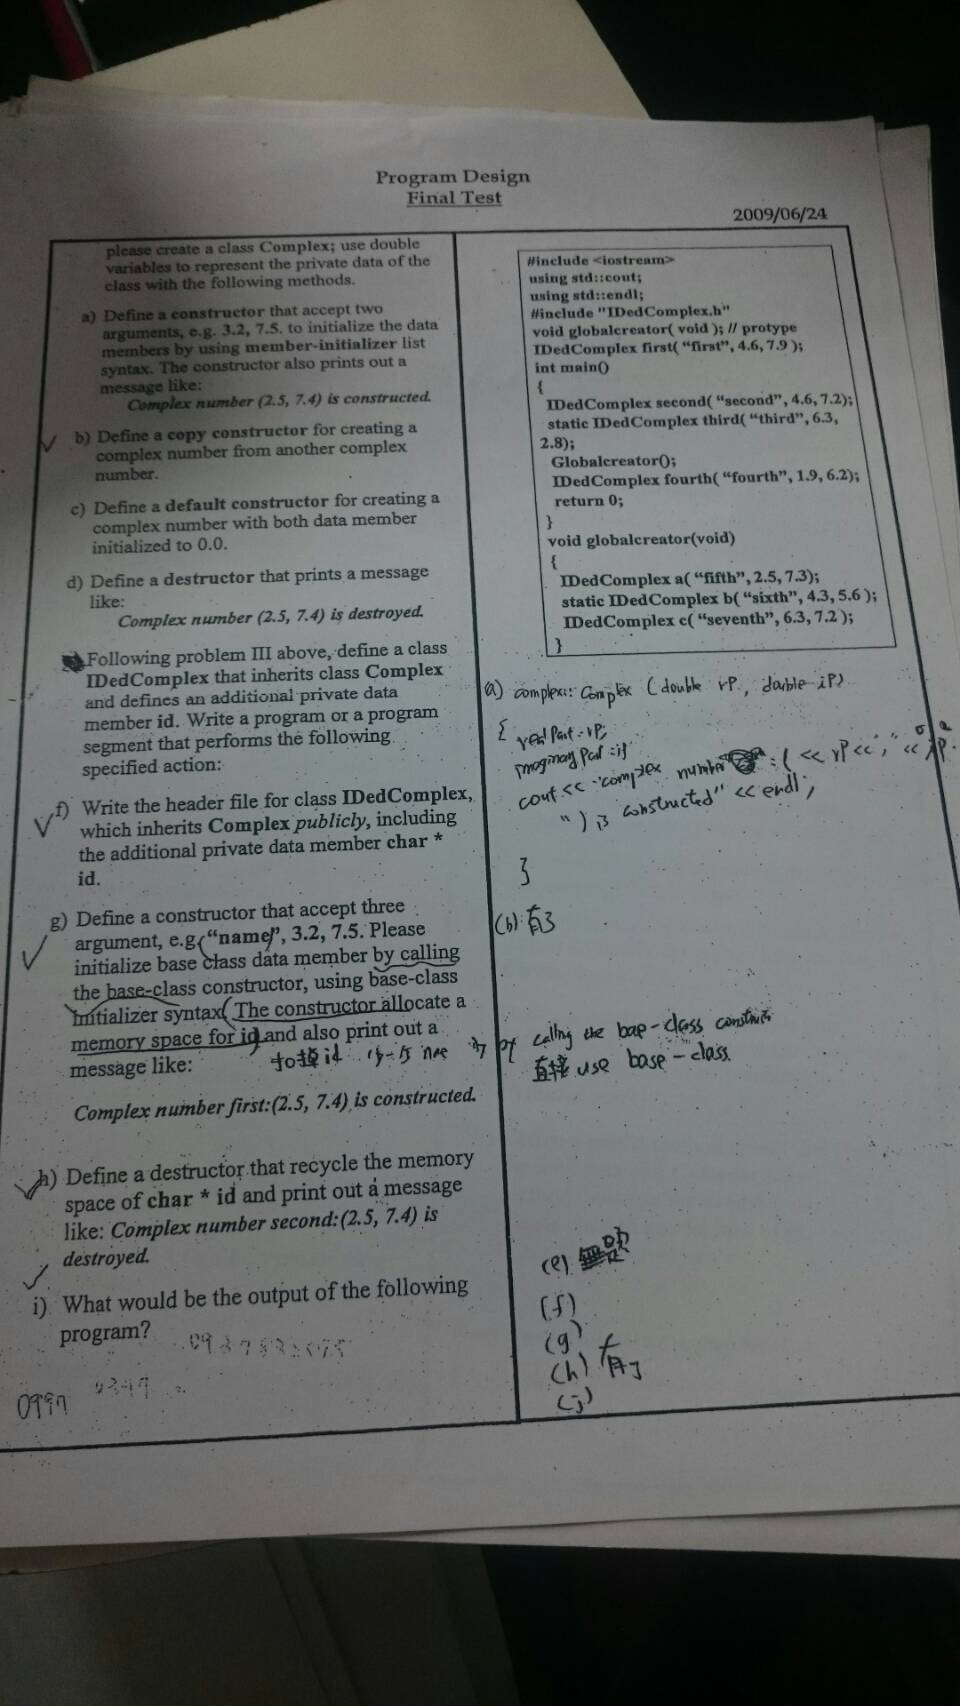 Program Design
Final Test
2009/06/24
please create a class Complex; use double
variables to represent the private data of the
class with the following methods.
a) Define a constructor that accept two
arguments, e.g. 3.2, 7.5. to initialize the data
members by using member-initializer list
syntax. The constructor also prints out a
message like:
Complex number (2.5, 7.4) is constructed.
b) Define a copy constructor for creating a
complex number from another complex
number.
c) Define a default constructor for creating a
complex number with both data member
initialized to 0.0.
d) Define a destructor that prints a message
like:
Complex number (2.5, 7.4) is destroyed.
Following problem III above, define a class
IDedComplex that inherits class Complex
and defines an additional private data
member id. Write a program or a program
segment that performs the following
specified action:
f) Write the header file for class IDedComplex,
which inherits Complex publicly, including
the additional private data member char *
id.
g) Define a constructor that accept three
argument, e.g. “name”, 3.2, 7.5. Please
initialize base class data member by calling
the base-class constructor, using base-class
initializer syntax. The constructor allocate a
memory space for id and also print out a
message like:
Complex number first:(2.5, 7.4) is constructed.
h) Define a destructor that recycle the memory
space of char * id and print out a message
like: Complex number second:(2.5, 7.4) is
destroyed.
i) What would be the output of the following
program?
0997
#include <iostream>
using std::cout;
using std::endl;
#include "IDedComplex.h"
void globalcreator( void ); // protype
IDedComplex first( “first”, 4.6, 7.9 );
int main()
{
IDedComplex second( “second”, 4.6, 7.2);
static IDedComplex third( “third”, 6.3,
2.8);
Globalcreator();
IDedComplex fourth( “fourth”, 1.9, 6.2);
return 0;
}
void globalcreator(void)
{
IDedComplex a( “fifth”, 2.5, 7.3);
static IDedComplex b( “sixth”, 4.3, 5.6 );
IDedComplex c( “seventh”, 6.3, 7.2 );
}
(a) complex:: Complex (double rP, double iP)
{ real Part = rP;
imaginary Part = iP
cout << "complex number : ( << rP << "," << iP
") is constructed" << endl;
}
(b) 有了
by calling the base-class constructor
直接 use base-class
(e)
(f)
(g)
(h) 有了
(i)